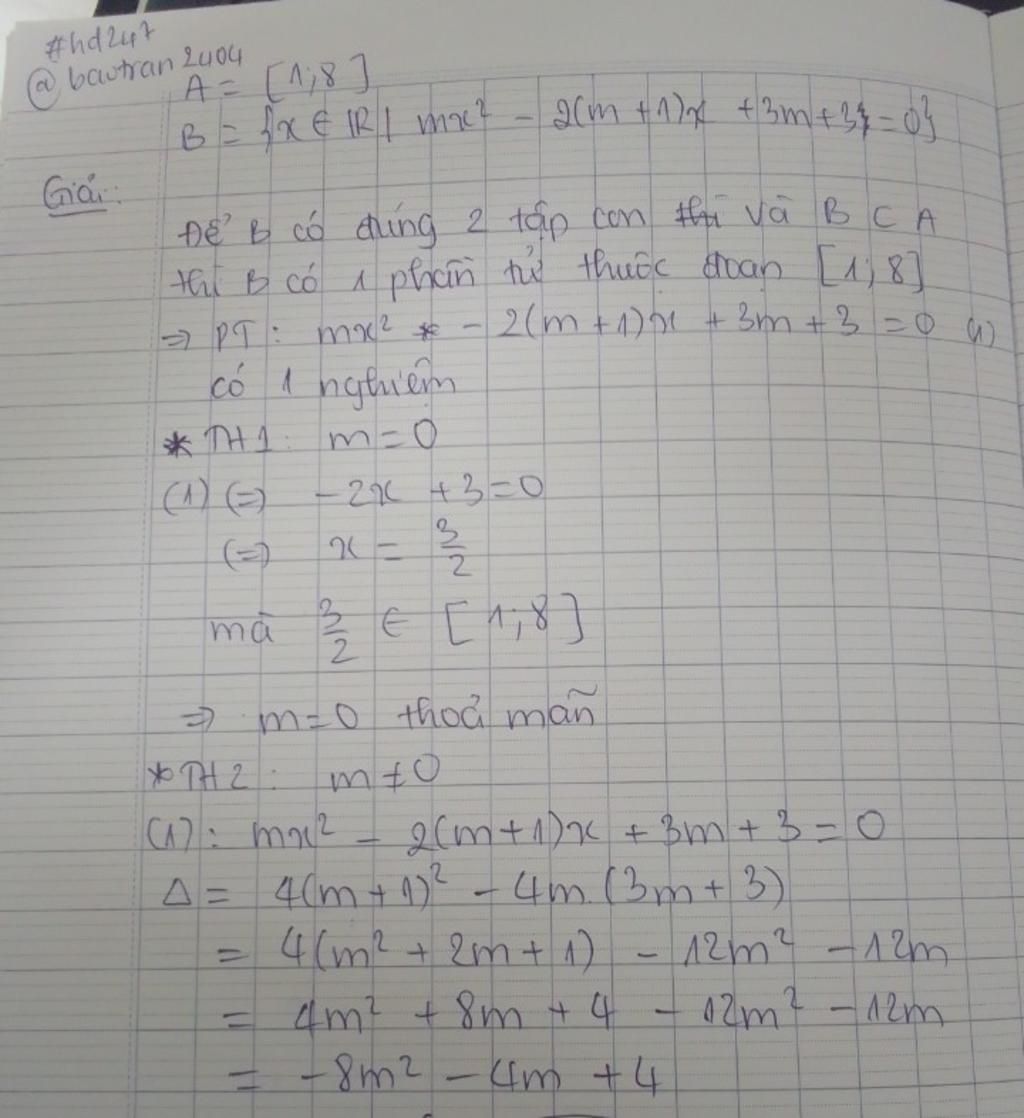 #hd247
@baotran2404
A = [1;8]
B = {x ∈ ℝ | mx² - 2(m+1)x + 3m+3 = 0}
Giải:
Để B có đúng 2 tập con và B ⊂ A
thì B có 1 phần tử thuộc đoạn [1;8]
⇒ PT: mx² - 2(m+1)x + 3m + 3 = 0 (1)
có 1 nghiệm
* TH1: m = 0
(1) (=) -2x + 3 = 0
(=) x = 3/2
mà 3/2 ∈ [1;8]
⇒ m=0 thoả mãn
* TH2: m ≠ 0
(1): mx² - 2(m+1)x + 3m + 3 = 0
Δ = 4(m+1)² - 4m.(3m+3)
= 4(m² + 2m + 1) - 12m² - 12m
= 4m² + 8m + 4 - 12m² - 12m
= -8m² - 4m + 4